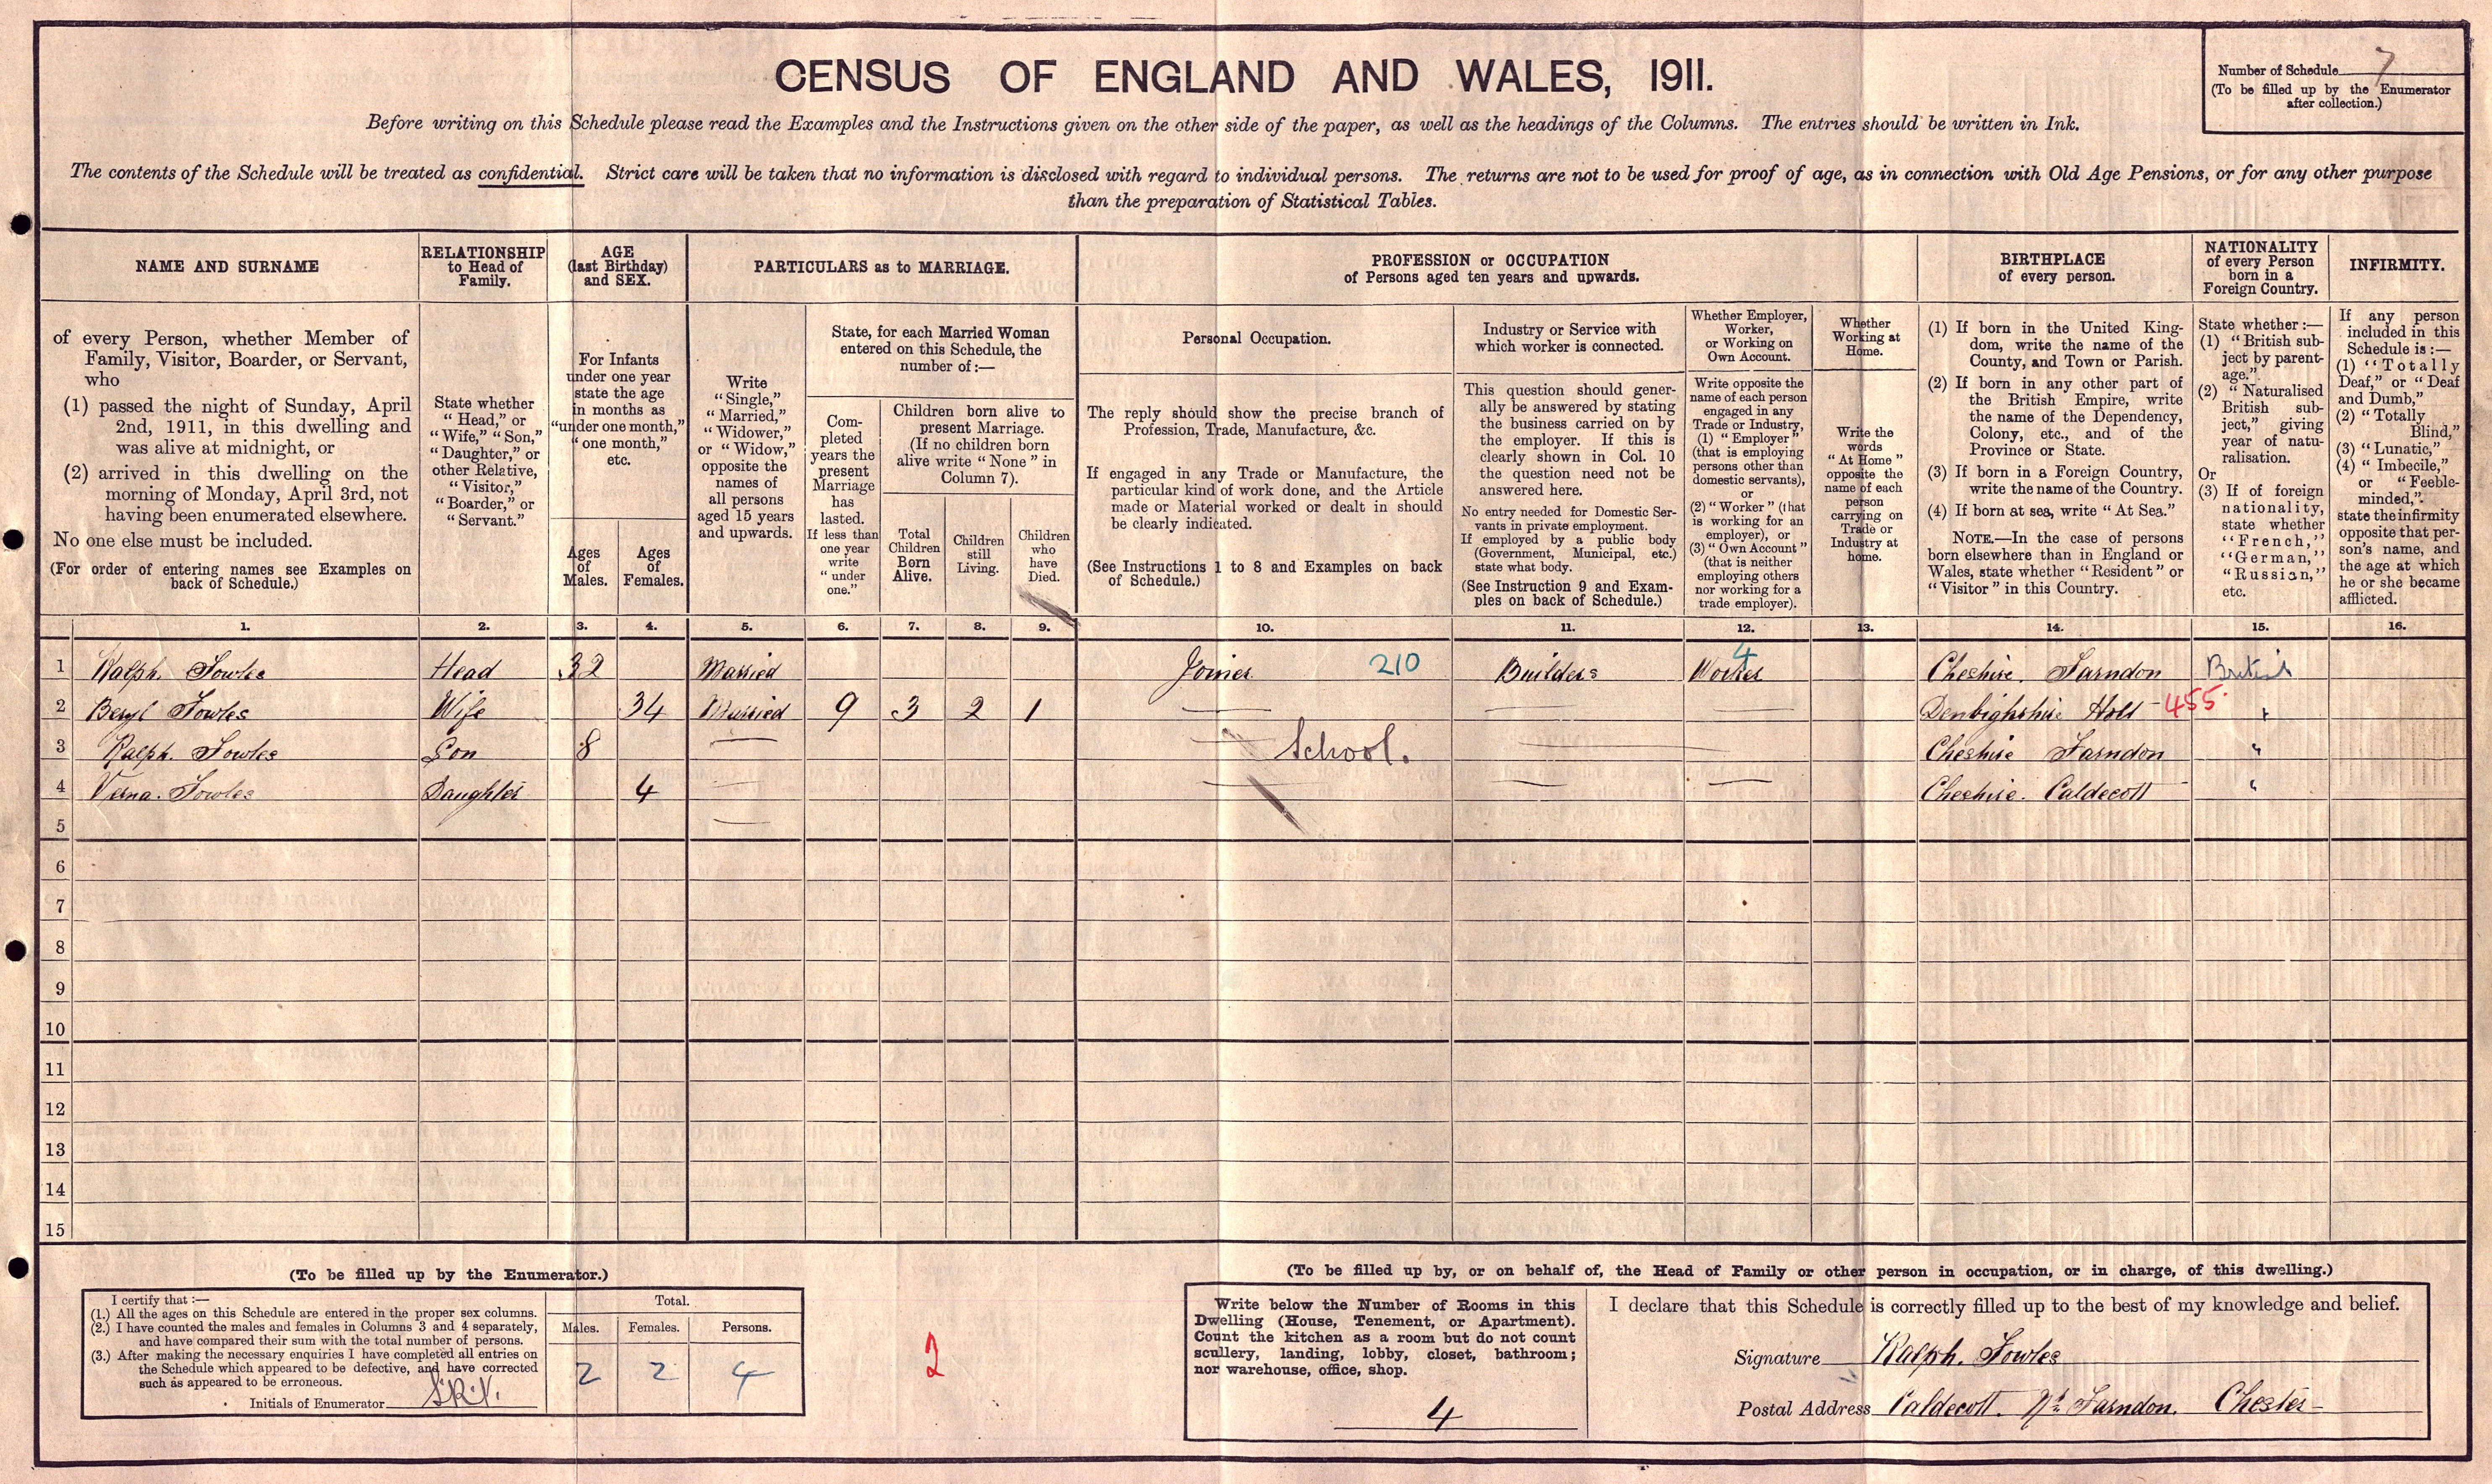 CENSUS OF ENGLAND AND WALES, 1911.
Number of Schedule 7
(To be filled up by the Enumerator
after collection.)
Before writing on this Schedule please read the Examples and the Instructions given on the other side of the paper, as well as the headings of the Columns. The entries should be written in Ink.
The contents of the Schedule will be treated as confidential. Strict care will be taken that no information is disclosed with regard to individual persons. The returns are not to be used for proof of age, as in connection with Old Age Pensions, or for any other purpose
than the preparation of Statistical Tables.
NAME AND SURNAME
of every Person, whether Member of
Family, Visitor, Boarder, or Servant,
who
(1) passed the night of Sunday, April
2nd, 1911, in this dwelling and
was alive at midnight, or
(2) arrived in this dwelling on the
morning of Monday, April 3rd, not
having been enumerated elsewhere.
No one else must be included.
(For order of entering names see Examples on
back of Schedule.)
RELATIONSHIP
to Head of
Family.
State whether
"Head," or
"Wife," "Son,"
"Daughter," or
other Relative,
"Visitor,"
"Boarder," or
"Servant."
AGE
(last Birthday)
and SEX.
For Infants
under one year
state the age
in months as
"under one month,"
"one month,"
etc.
Ages
of
Males.
Ages
of
Females.
PARTICULARS as to MARRIAGE.
Write
"Single,"
"Married,"
"Widower,"
or "Widow,"
opposite the
names of
all persons
aged 15 years
and upwards.
State, for each Married Woman
entered on this Schedule, the
number of:—
Com-
pleted
years the
present
Marriage
has
lasted.
If less than
one year
write
"under
one."
Children born alive to
present Marriage.
(If no children born
alive write "None" in
Column 7).
Total
Children
Born
Alive.
Children
still
Living.
Children
who
have
Died.
PROFESSION or OCCUPATION
of Persons aged ten years and upwards.
Personal Occupation.
The reply should show the precise branch of
Profession, Trade, Manufacture, &c.
If engaged in any Trade or Manufacture, the
particular kind of work done, and the Article
made or Material worked or dealt in should
be clearly indicated.
(See Instructions 1 to 8 and Examples on back
of Schedule.)
Industry or Service with
which worker is connected.
This question should gener-
ally be answered by stating
the business carried on by
the employer. If this is
clearly shown in Col. 10
the question need not be
answered here.
No entry needed for Domestic Ser-
vants in private employment.
If employed by a public body
(Government, Municipal, etc.)
state what body.
(See Instruction 9 and Exam-
ples on back of Schedule.)
Whether Employer,
Worker,
or Working on
Own Account.
Write opposite the
name of each person
engaged in any
Trade or Industry,
(1) "Employer"
(that is employing
persons other than
domestic servants),
or
(2) "Worker" (that
is working for an
employer), or
(3) "Own Account"
(that is neither
employing others
nor working for a
trade employer).
Whether
Working at
Home.
Write the
words
"At Home"
opposite the
name of each
person
carrying on
Trade or
Industry at
home.
BIRTHPLACE
of every person.
(1) If born in the United King-
dom, write the name of the
County, and Town or Parish.
(2) If born in any other part of
the British Empire, write
the name of the Dependency,
Colony, etc., and of the
Province or State.
(3) If born in a Foreign Country,
write the name of the Country.
(4) If born at sea, write "At Sea."
NOTE.—In the case of persons
born elsewhere than in England or
Wales, state whether "Resident" or
"Visitor" in this Country.
NATIONALITY
of every Person
born in a
Foreign Country.
State whether:—
(1) "British sub-
ject by parent-
age."
(2) "Naturalised
British sub-
ject," giving
year of natu-
ralisation.
Or
(3) If of foreign
nationality,
state whether
"French,"
"German,"
"Russian,"
etc.
INFIRMITY.
If any person
included in this
Schedule is:—
(1) "Totally
Deaf," or "Deaf
and Dumb,"
(2) "Totally
Blind,"
(3) "Lunatic,"
(4) "Imbecile,"
or "Feeble-
minded,"
state the infirmity
opposite that per-
son's name, and
the age at which
he or she became
afflicted.
1. 2. 3. 4. 5. 6. 7. 8. 9. 10. 11. 12. 13. 14. 15. 16.
1 Ralph. Fowles Head 32 Married Joiner 210 Builders Worker 4 Cheshire. Farndon British
2 Beryl Fowles Wife 34 Married 9 3 2 1 Denbighshire Holt 455 "
3 Ralph. Fowles Son 8 School. Cheshire Farndon "
4 Verna. Fowles Daughter 4 Cheshire. Caldecott "
5
6
7
8
9
10
11
12
13
14
15
(To be filled up by the Enumerator.)
I certify that:—
(1.) All the ages on this Schedule are entered in the proper sex columns.
(2.) I have counted the males and females in Columns 3 and 4 separately,
and have compared their sum with the total number of persons.
(3.) After making the necessary enquiries I have completed all entries on
the Schedule which appeared to be defective, and have corrected
such as appeared to be erroneous.
Initials of Enumerator
Total.
Males. Females. Persons.
2 2 4
2
(To be filled up by, or on behalf of, the Head of Family or other person in occupation, or in charge, of this dwelling.)
Write below the Number of Rooms in this
Dwelling (House, Tenement, or Apartment).
Count the kitchen as a room but do not count
scullery, landing, lobby, closet, bathroom;
nor warehouse, office, shop.
4
I declare that this Schedule is correctly filled up to the best of my knowledge and belief.
Signature Ralph. Fowles
Postal Address Caldecott. Nr Farndon. Chester